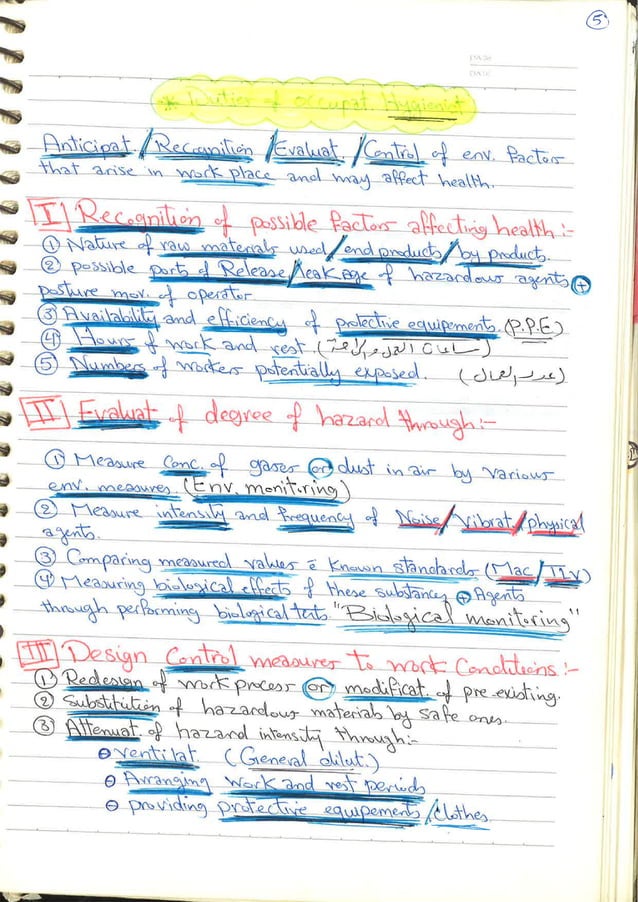 5
DATE
DATE
* Duties of occupat. Hygienist
Anticipat./Recognition/Evaluat./Control of env. factors
that arise in work place and may affect health.
I Recognition of possible factors affecting health:-
① Nature of raw materials used/end products/by products.
② possible ports of Release/leakage of hazardous agents +
posture mov. of operator
③ Availability and efficiency of protective equipements. (P.P.E)
④ Hours of work and rest. (ساعات العمل والراحة)
⑤ Numbers of workers potentially exposed. (عدد العمال)
II Evaluat. of degree of hazard through:-
① Measure conc. of gases or dust in air by various
env. measures (Env. monitoring)
② Measure intensity and frequency of Noise/Vibrat./physical
agents.
③ Comparing measured values c̄ known standards (Mac/TLV)
④ Measuring biological effects of these substancs + Agents
through performing biological tests "Biological monitoring"
III Design control measures to work Conditions:-
① Redesign of work process or modificat. of pre-existing.
② Substitution of hazardous materials by safe ones.
③ Attenuat. of hazard intensity through:-
⊖ ventilat. (General dilut.)
⊖ Arranging work and rest periods
⊖ providing protective equipements/clothes